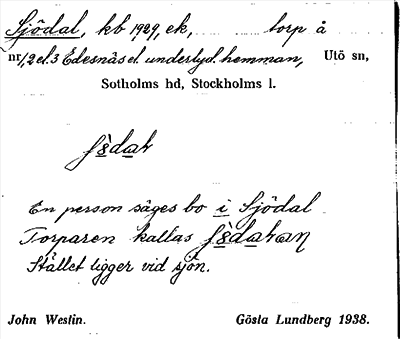 Sjödal, kb 1929, ek, torp å
nr 1, 2 el. 3 Edesnäs el. underlyd. hemman, Utö sn,
Sotholms hd, Stockholms l.
En person säges bo i Sjödal
Torparen kallas
Stället ligger vid sjön.
John Westin. Gösta Lundberg 1938.